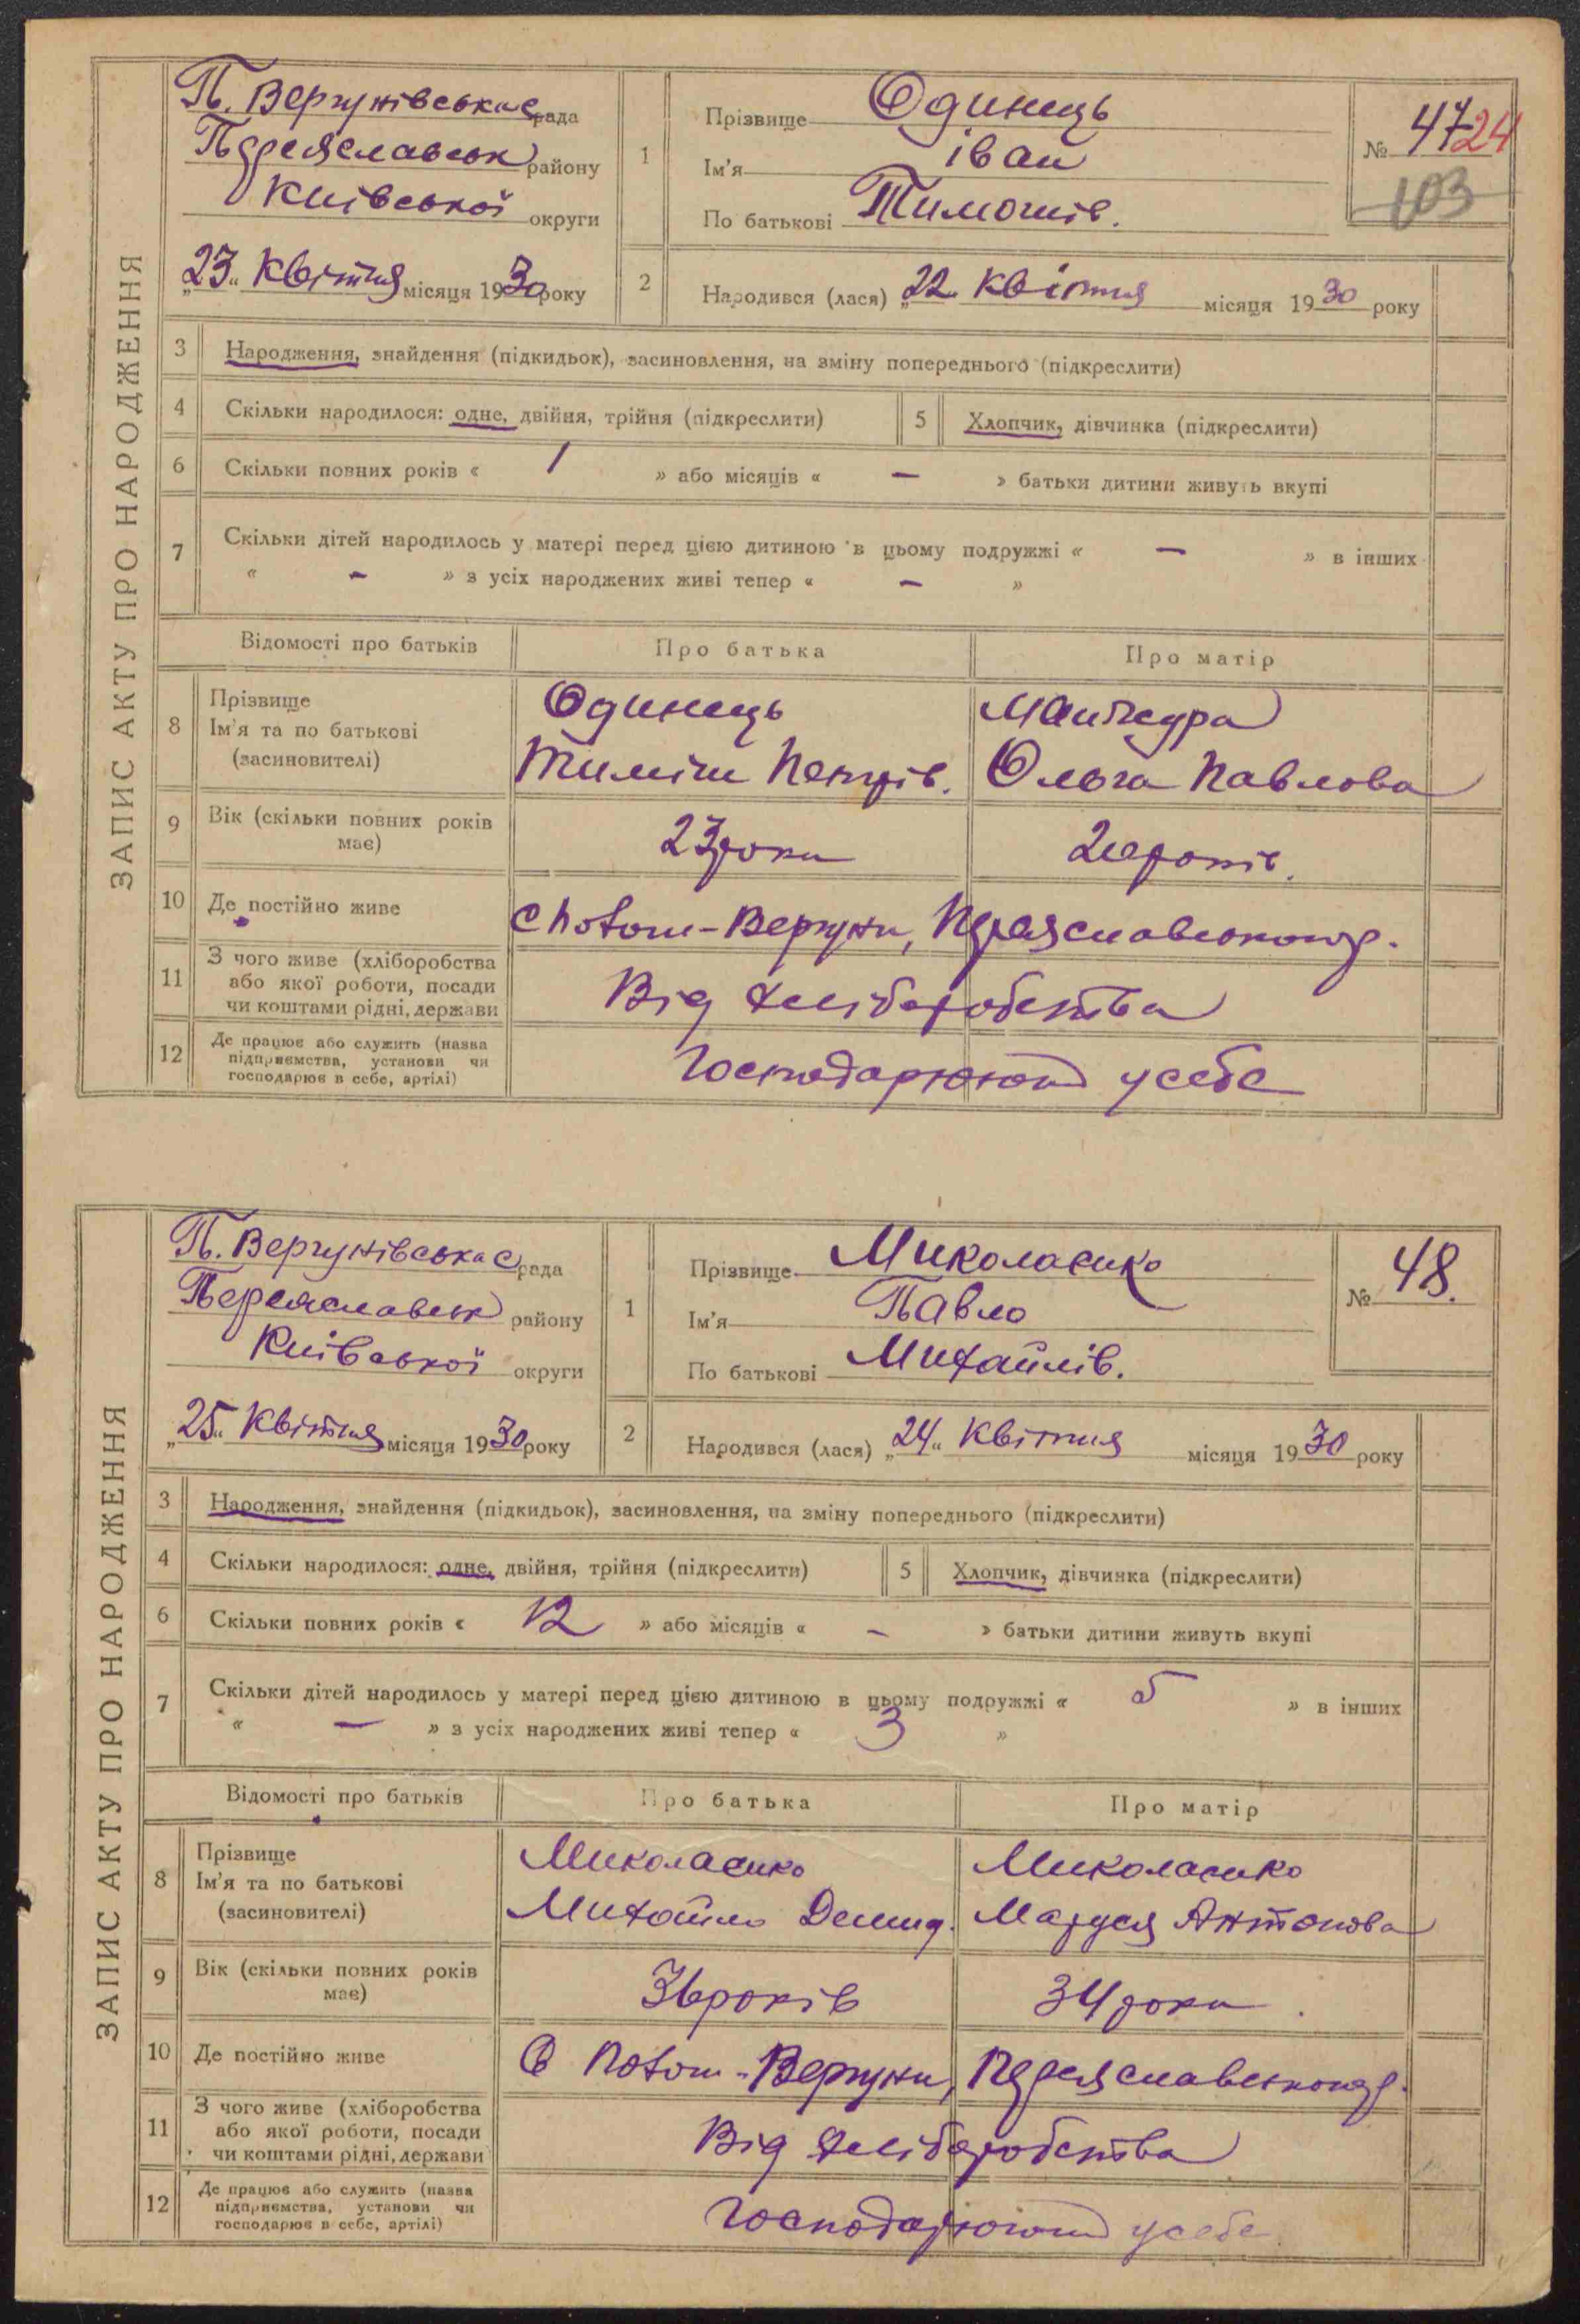 ЗАПИС АКТУ ПРО НАРОДЖЕННЯ
П. Вергунівська с рада
Переяславськ району
Київської округи
„23“ Квітня місяця 1930 року
1
Прізвище Одинець
Ім'я Іван
По батькові Тимошів.
№ 47 24
103
2
Народився (лася) „22 Квітня місяця 1930 року
3 Народження, знайдення (підкидьок), засиновлення, на зміну попереднього (підкреслити)
4 Скільки народилося: одне, двійня, трійня (підкреслити) 5 Хлопчик, дівчинка (підкреслити)
6 Скільки повних років « 1 » або місяців « — » батьки дитини живуть вкупі
7 Скільки дітей народилось у матері перед цією дитиною в цьому подружжі « — » в інших
« — » з усіх народжених живі тепер « — »
Відомості про батьків Про батька Про матір
8 Прізвище
Ім'я та по батькові
(засиновителі)
Одинець
Тиміш Петрів.
Ольга Павлова
9 Вік (скільки повних років
має)
23 роки
років.
10 Де постійно живе
с Поток-Вергуни, Переяславського р.
11 З чого живе (хліборобства
або якої роботи, посади
чи коштами рідні, держави
Від хліборобства
12 Де працює або служить (назва
підприємства, установи чи
господарює в себе, артілі)
Господарюють у себе
ЗАПИС АКТУ ПРО НАРОДЖЕННЯ
П. Вергунівська с рада
Переяславськ району
Київської округи
„25“ Квітня місяця 1930 року
1
Прізвище Миколаєнко
Ім'я Павло
По батькові Михайлів.
№ 48.
2
Народився (лася) „24“ Квітня місяця 1930 року
3 Народження, знайдення (підкидьок), засиновлення, на зміну попереднього (підкреслити)
4 Скільки народилося: одне, двійня, трійня (підкреслити) 5 Хлопчик, дівчинка (підкреслити)
6 Скільки повних років « 12 » або місяців « — » батьки дитини живуть вкупі
7 Скільки дітей народилось у матері перед цією дитиною в цьому подружжі « 5 » в інших
« — » з усіх народжених живі тепер « 3 »
Відомості про батьків Про батька Про матір
8 Прізвище
Ім'я та по батькові
(засиновителі)
Миколаєнко
Михайло Демид.
Миколаєнко
Маруся Антонова
9 Вік (скільки повних років
має)
36 років
34 роки
10 Де постійно живе
с Поток-Вергуни, Переяславського р.
11 З чого живе (хліборобства
або якої роботи, посади
чи коштами рідні, держави
Від хліборобства
12 Де працює або служить (назва
підприємства, установи чи
господарює в себе, артілі)
Господарюють у себе